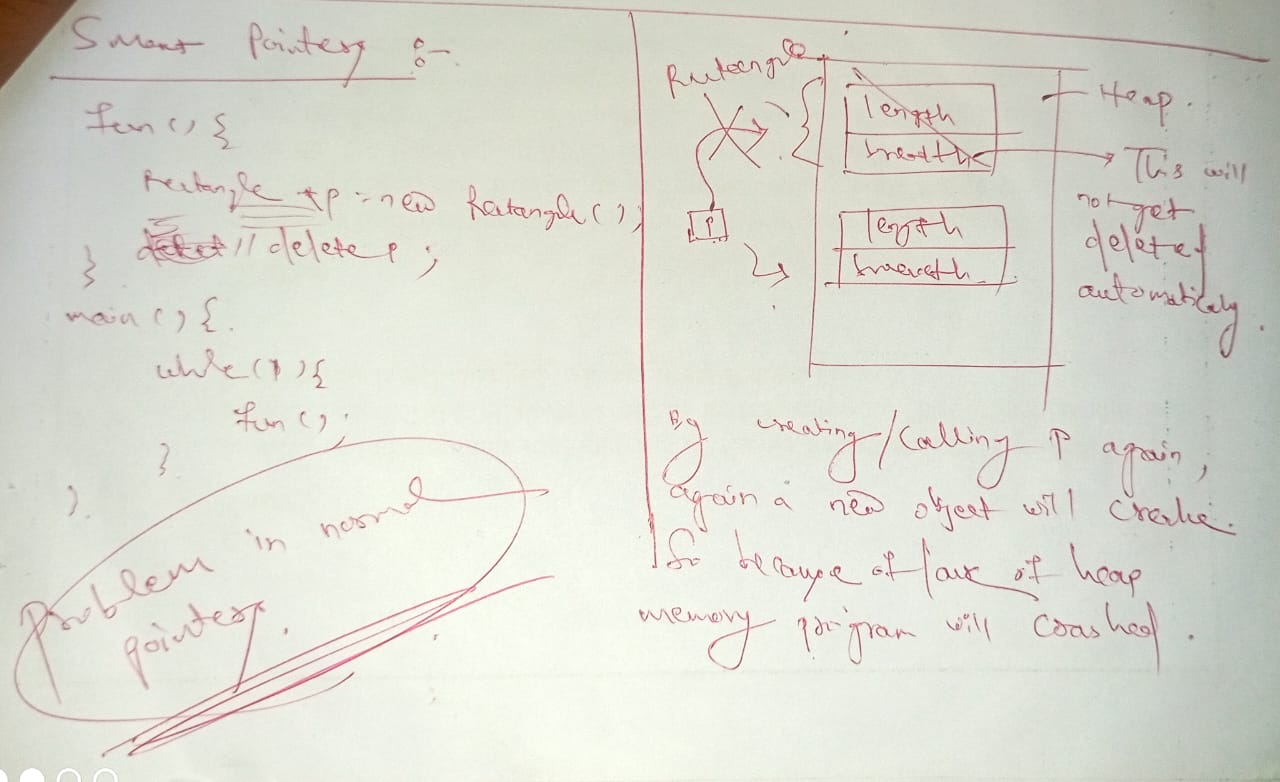 Smart Pointers :-
fun() {
Rectangle *p = new Rectangle();
// delete p;
}
main() {
while(1) {
fun();
}
}
Problem in normal
pointers.
Rectangle
P
length
breadth
length
breadth
Heap.
This will
not get
deleted
automatically.
By creating/calling P again,
again a new object will create.
So because of lack of heap
memory program will crashed.